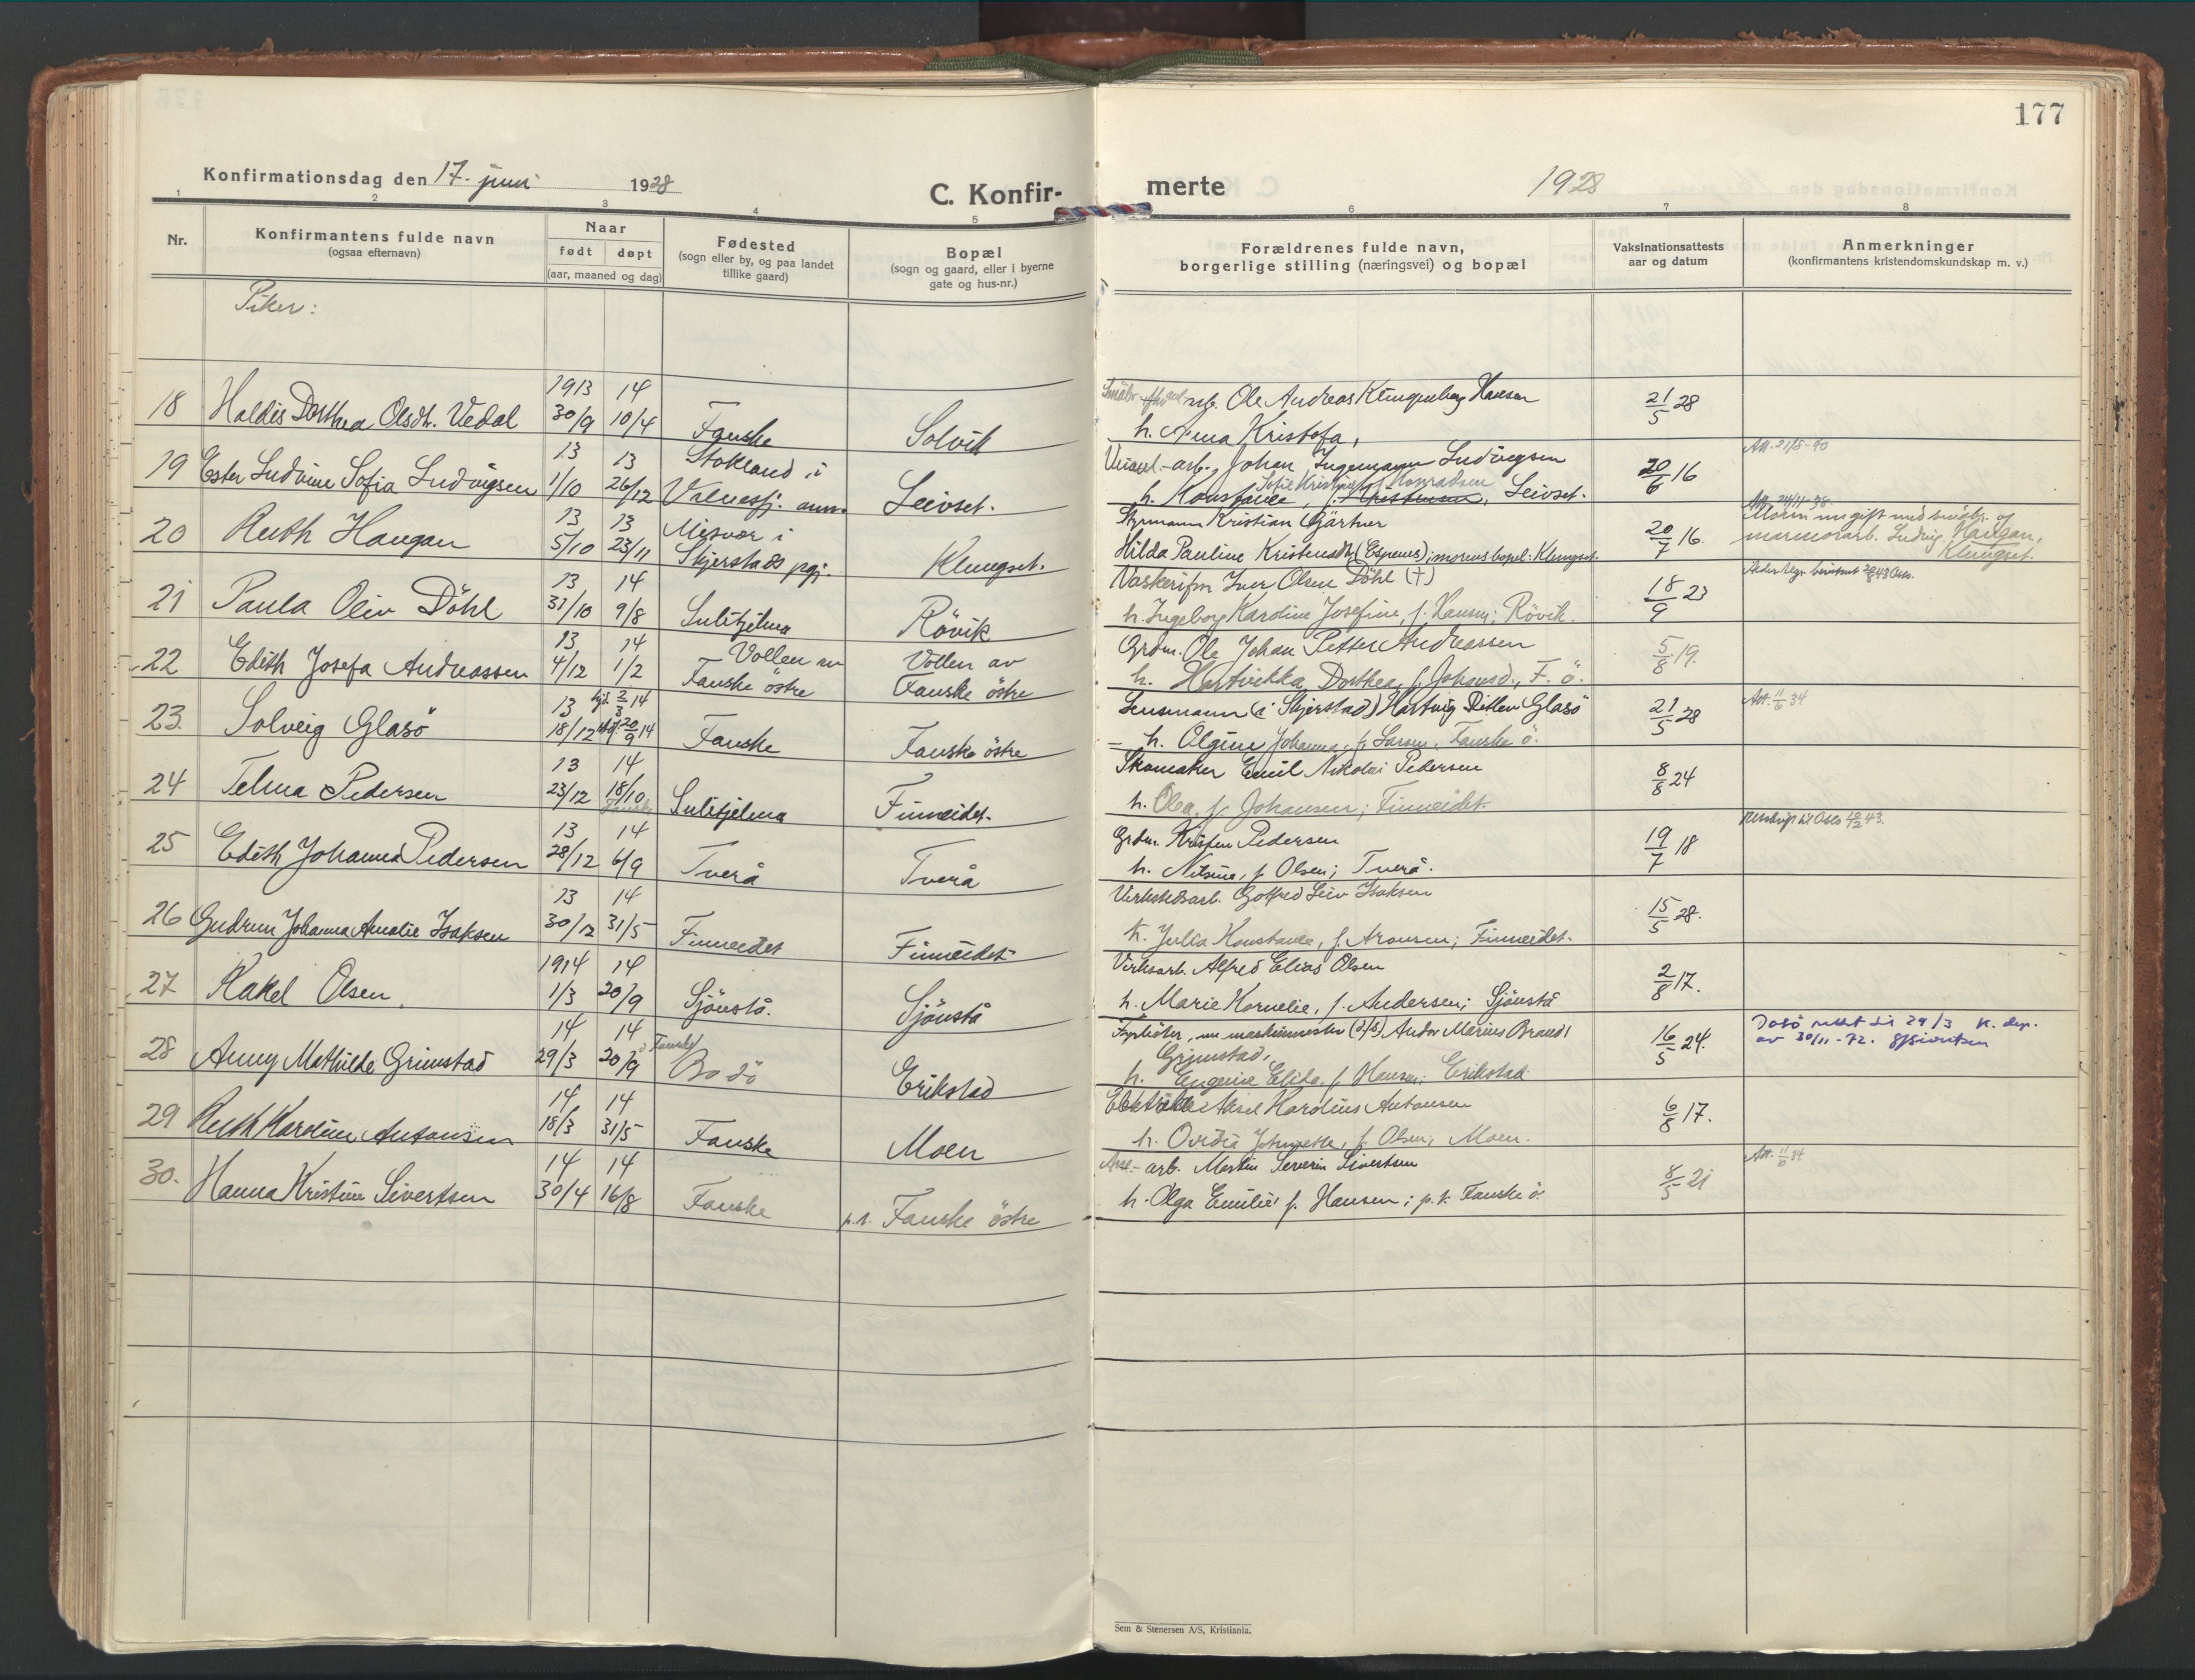 177
Konfirmationsdag den 17. juni 1928
C. Konfir-
merte
1928
1 2 3 4 5 6 7 8
Nr.
Konfirmantens fulde navn
(ogsaa efternavn)
Naar
født døpt
(aar, maaned og dag)
Fødested
(sogn eller by, og paa landet
tillike gaard)
Bopæl
(sogn og gaard, eller i byerne
gate og hus-nr.)
Forældrenes fulde navn,
borgerlige stilling (næringsvei) og bopæl
Vaksinationsattests
aar og datum
Anmerkninger
(konfirmantens kristendomskundskap m. v.)
Piker:
18 Haldis Dorthea Olsdt. Vedal 1913 30/9 14 10/4 Fauske Solvik
arb. Ole Andreas Klungseberg Hansen
h. Anna Kristofa,
21/5 28
19 Ester Ludvine Sofia Ludvigsen 13 1/10 13 26/12 Stokland i
Valnesfj. ann. Leivset.
arb. Johan Ingemann Ludvigsen
Sofie Kristine f. Konradsen
h. Konstance, f. Kristensen, Leivset.
20/6 16
Att. 21/8-40
20 Ruth Haugan 13 5/10 13 23/11 Misvær i
Skjerstads pgj. Klungset.
Styrmann Kristian Gärtner
Hilda Pauline Kristensdt. (Espenes); morens bopel: Klungset.
20/7 16.
Att. 24/11-38.
Moren nu gift med småbr. og
marmorarb. Ludvig Haugan,
Klungset.
21 Paula Oliv Döhl 13 31/10 14 9/8 Sulitjelma Rövik
Vaskerifm Iver Olsen Döhl (†)
h. Ingeborg Karoline Josefine, f. Hansen; Rövik.
18/9 23
22 Edith Josefa Andreassen 13 4/12 14 1/2 Vollen av
Fauske östre
Vollen av
Fauske östre
Grdm. Ole Johan Petter Andreassen
h. Hartvikka Dorthea, f. Johansd., F. ö.
5/8 19.
23 Solveig Glasö 13 18/12 hjd. 2/3 14 20/9 14 Fauske Fauske östre
Lensmann (i Skjerstad) Hartvig Ditlev Glasö
h. Olgine Johanna, f. Larsen, Fauske ö.
21/5 28
Att. 11/6 34
24 Telma Pedersen 13 23/12 14 18/10 Fauske Sulitjelma Finneidet.
Skomaker Emil Nikolai Pedersen
h. Olea, f. Johansen; Finneidet.
8/8 24
25 Edith Johanna Pedersen 13 28/12 14 6/9 Tverå Tverå
Grdm. Kristen Pedersen
h. Nilsine, f. Olsen; Tverå.
19/7 18
26 Gudrun Johanna Amalie Isaksen 13 30/12 14 31/5 Finneidet Finneidet
Verkstedsarb. Gotfred Leiv Isaksen
h. Julia Konstance, f. Aronsen; Finneidet.
15/5 28.
27 Rakel Olsen. 1914 1/3 14 20/9 Sjönstå. Sjönstå
Verksarb. Alfred Elias Olsen
h. Marie Kornelie, f. Andersen; Sjönstå
2/8 17.
28 Anny Mathilde Grimstad 14 29/3 14 20/9 Fauske Bodö Erikstad
Fyrböter, nu maskinmester (d/s) Andor Marius Brandt
Grimstad,
h. Eugenie Elida, f. Hansen; Erikstad
16/5 24.
Dato rettet til 29/3 K. dep.
av 30/11-72.
29 Ruth Karoline Antonsen 14 18/3 14 31/5 Fauske Moen
Aksel Karolius Antonsen
h. Ovidia Johnette, f. Olsen, Moen.
6/8 17.
30. Hanna Kristine Sivertsen 14 30/4 14 16/8 Fauske p.t. Fauske östre
arb. Martin Severin Sivertsen
h. Olga Emilie f. Hansen; p.t. Fauske ö.
8/5 21
Att. 11/10 34
Sem & Stenersen A/S, Kristiania.